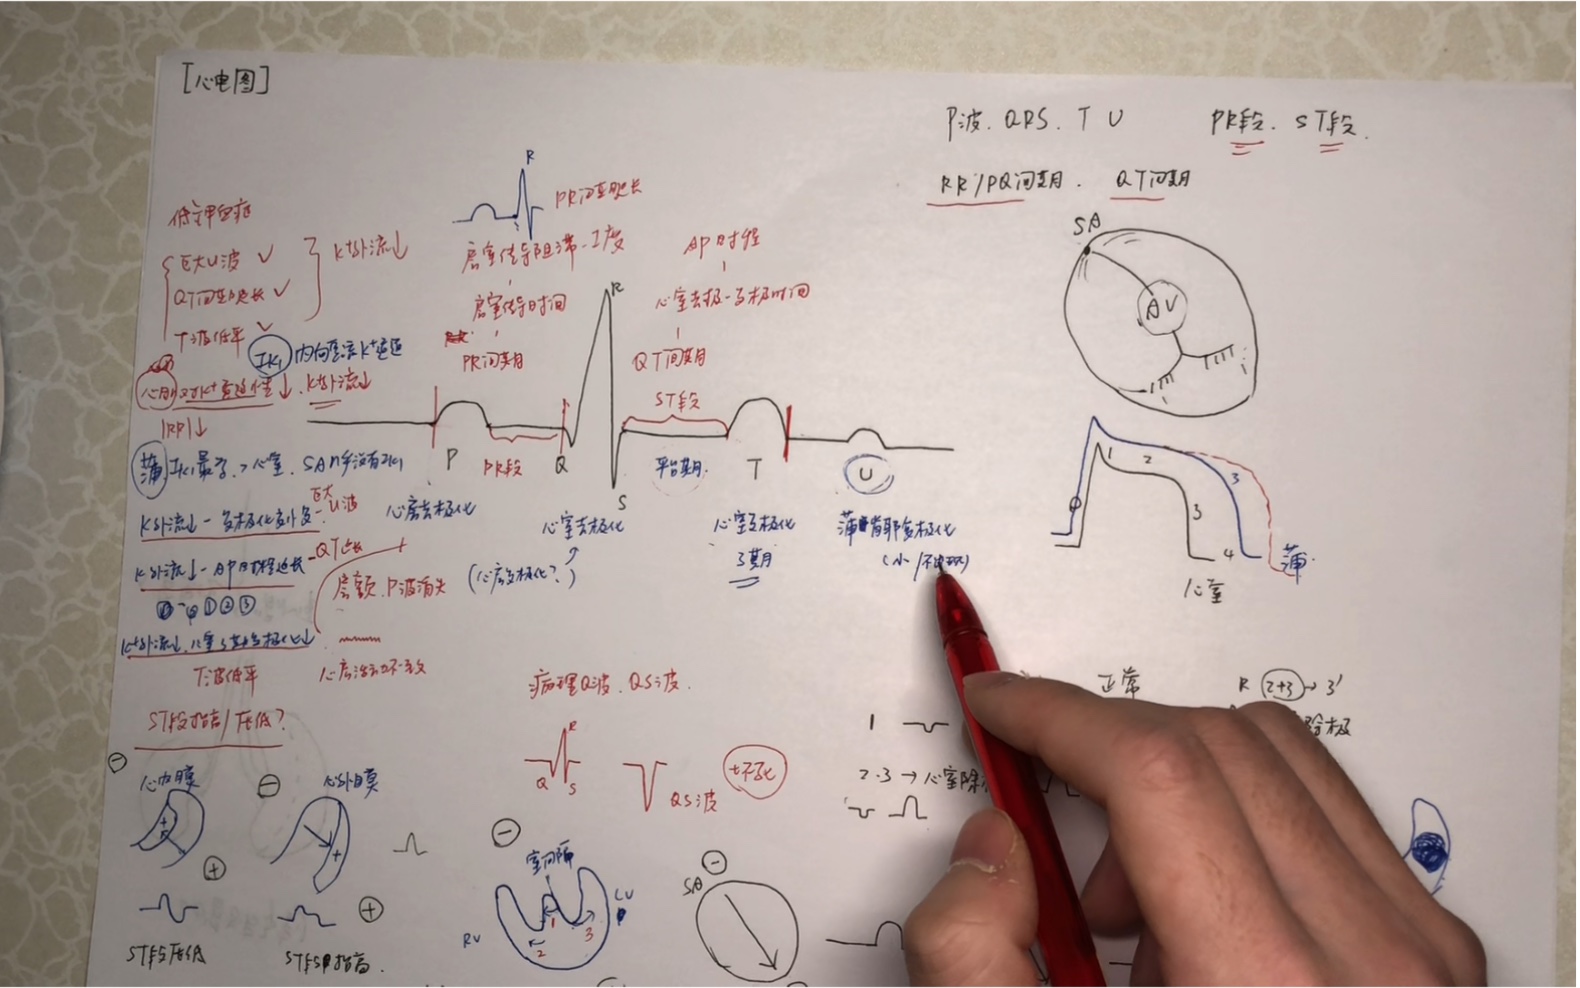 [心电图]
P波. QRS. T U
PR段. ST段.
PR/PQ间期. QT间期
R
PR间期延长
房室传导阻滞-I度
房室传导时间
PR间期
AP时程
心室去极-复极时间
QT间期
ST段
低钾血症
巨大U波 ✓
QT间期延长 ✓
T波低平 ✓
K⁺外流↓
IK₁ 内向整流K⁺通道
心肌对K⁺通透性↓. K⁺外流↓
|RP|↓
蒲 IK₁最多. > 心室. SAn乡没有IK₁
K外流↓ - 复极化
巨大U波
K外流↓ - AP时程延长 - QT延长
⓪ ① ② ③
K⁺外流↓. 心室3期复极化↓
T波低平
P
PR段
Q
R
S
平台期.
T
U
心房去极化
心室去极化
(心房复极化?)
心室复极化
3期
蒲肯耶复极化
房颤. P波消失
心房活动不一致
SA
AV
1
2
3
3
4
0
蒲.
心室
ST段抬高/压低?
心内膜
心外膜
ST段压低
ST段抬高.
病理Q波. QS波.
R
Q
S
QS波
坏死
室间隔
RV
LV
1
2
3
SA
正常
1
2.3 → 心室除
R (2+3) → 3'